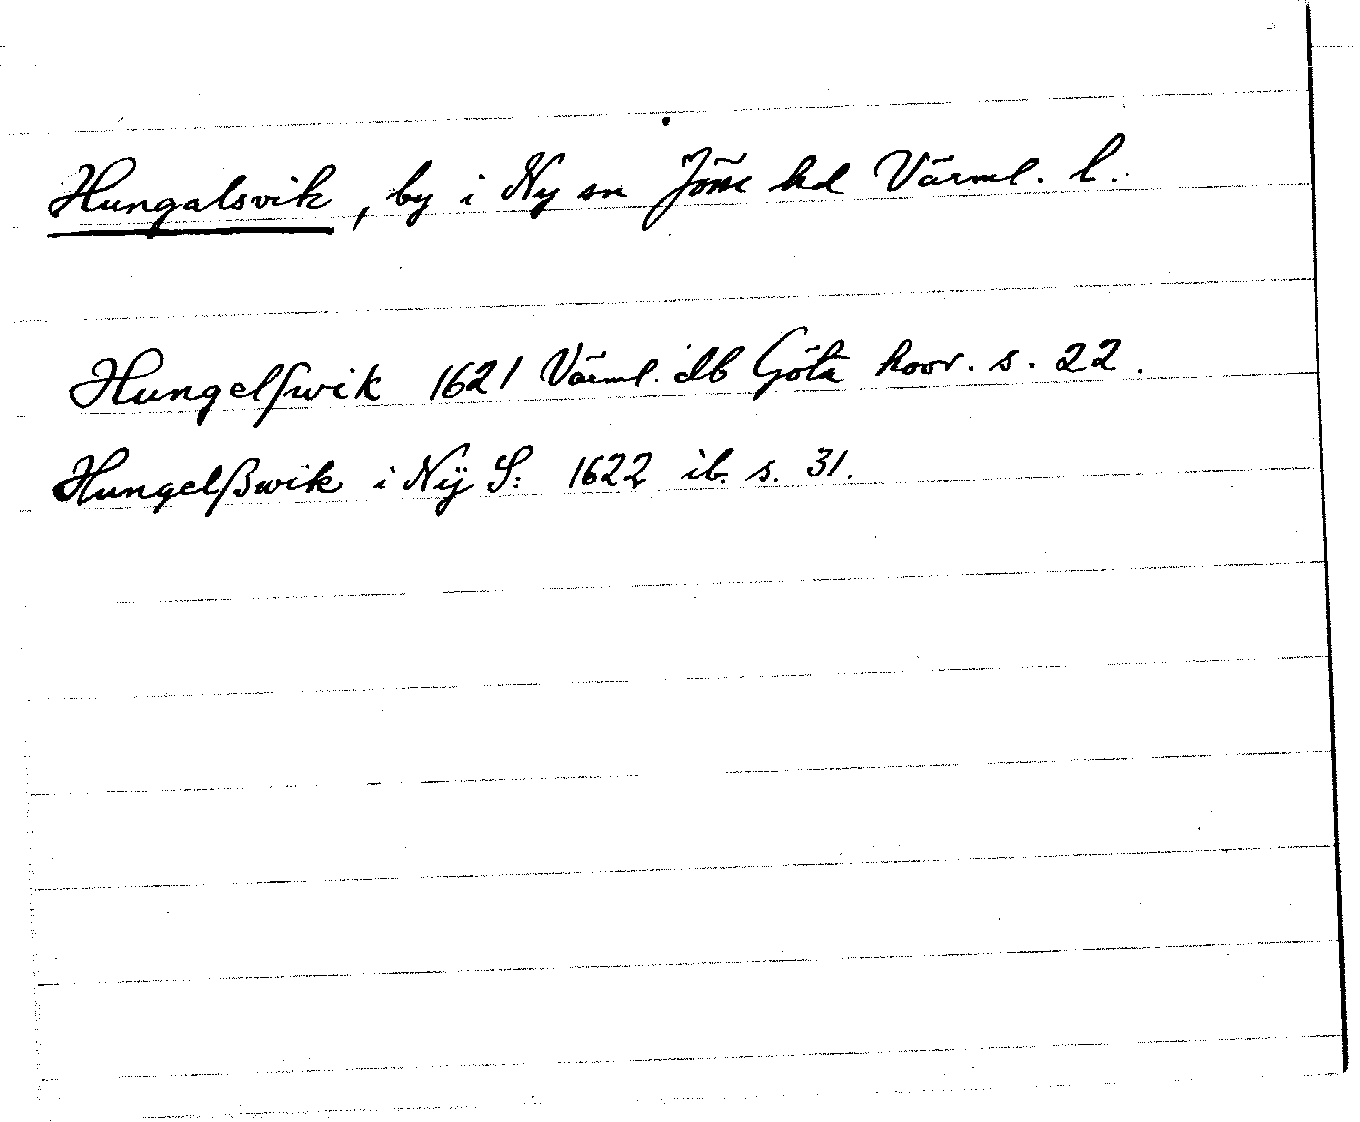 Hungalsvik, by i Ny sn Jösse hd Värml. l.
Hungelſwik 1621 Värml. db Göta hovr. s. 22.
Hungelßwik i Nÿ S: 1622 ib. s. 31.